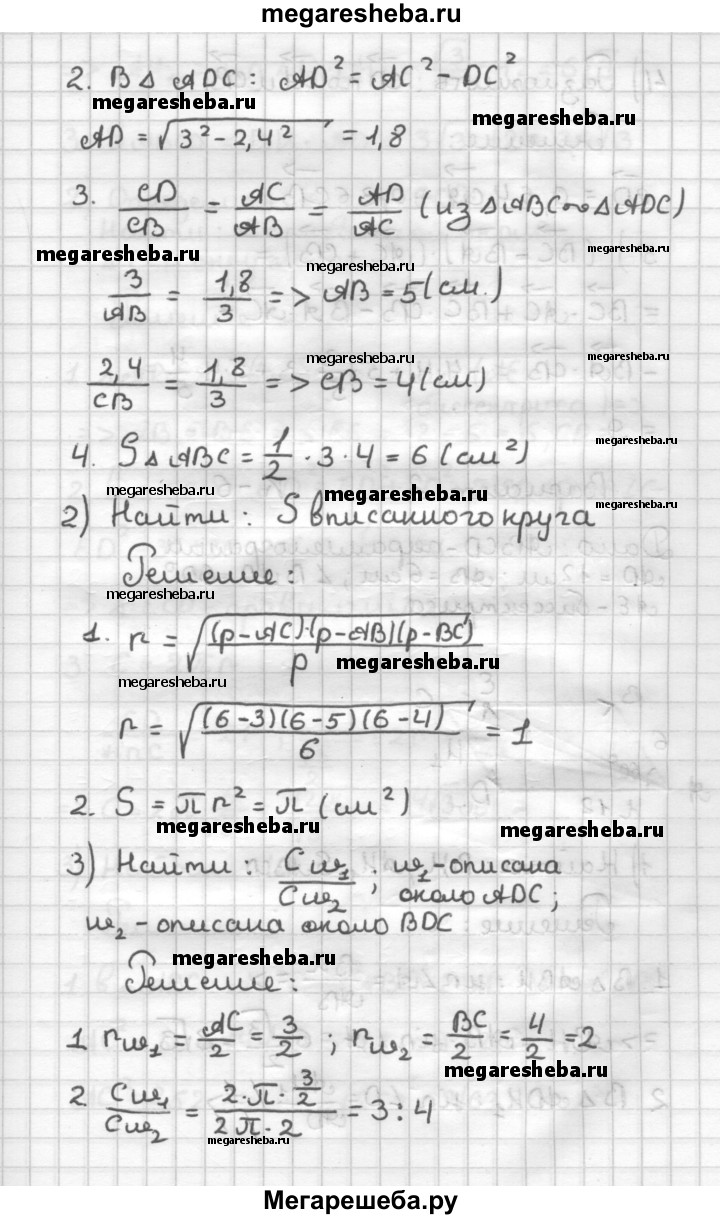 megaresheba.ru
2. В Δ ADC: AD² = AC² - DC²
megaresheba.ru
megaresheba.ru
AD = √(3² - 2,4²) = 1,8
3. CD/CB = AC/AB = AD/AC (из ΔABC ∾ ΔADC)
megaresheba.ru
megaresheba.ru
megaresheba.ru
3/AB = 1,8/3 => AB = 5 (см.)
megaresheba.ru
megaresheba.ru
2,4/CB = 1,8/3 => CB = 4 (см)
megaresheba.ru
4. SΔABC = 1/2 · 3 · 4 = 6 (см²)
megaresheba.ru
megaresheba.ru
2) Найти: S вписанного круга
Решение:
megaresheba.ru
1. r = √((p-AC)·(p-AB)(p-BC)/p)
megaresheba.ru
megaresheba.ru
r = √((6-3)(6-5)(6-4)/6) = 1
2. S = πr² = π (см²)
megaresheba.ru
megaresheba.ru
3) Найти: Cω₁/Cω₂; ω₁-описана
около ADC;
ω₂-описана около BDC:
megaresheba.ru
Решение:
1 rω₁ = AC/2 = 3/2; rω₂ = BC/2 = 4/2 = 2
megaresheba.ru
2 Cω₁/Cω₂ = 2·π·3/2 / 2π·2 = 3:4
megaresheba.ru
Мегарешеба.ру